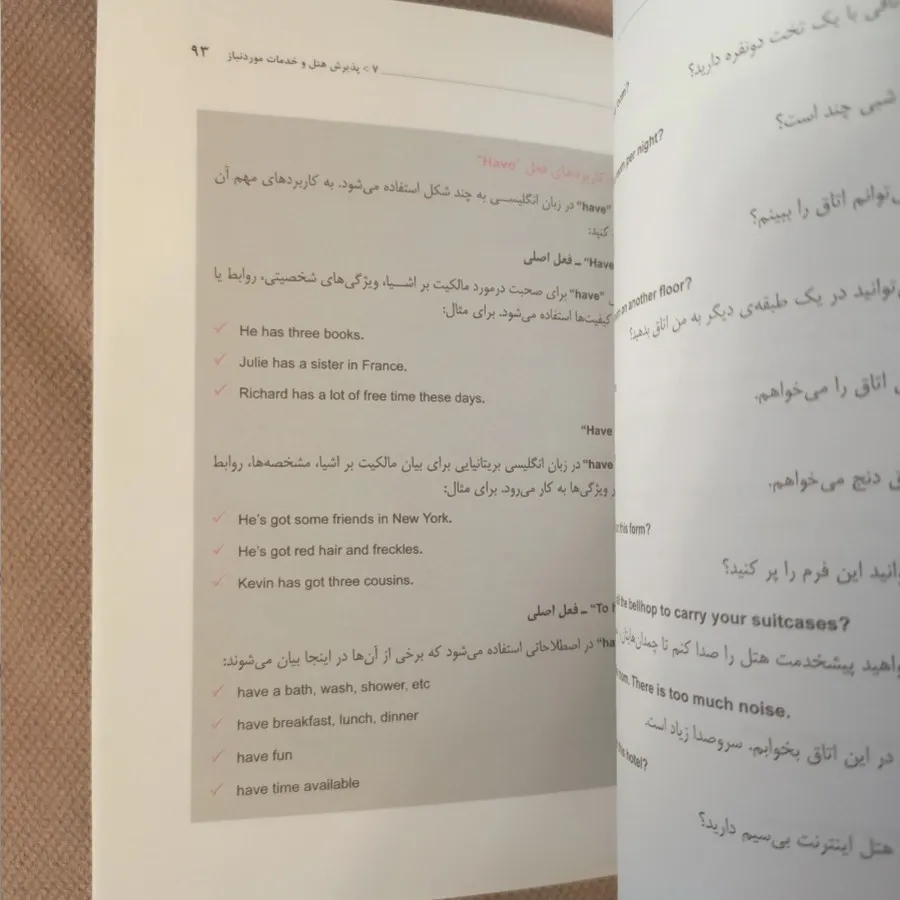 ۹۳
۷ > پذیرش هتل و خدمات موردنیاز
کاربردهای فعل "Have"
"have" در زبان انگلیسی به چند شکل استفاده می‌شود. به کاربردهای مهم آن
کنید:
"Have" ـ فعل اصلی
"have" برای صحبت درمورد مالکیت بر اشیا، ویژگی‌های شخصیتی، روابط یا
کیفیت‌ها استفاده می‌شود. برای مثال:
✓ He has three books.
✓ Julie has a sister in France.
✓ Richard has a lot of free time these days.
"Have
"have در زبان انگلیسی بریتانیایی برای بیان مالکیت بر اشیا، مشخصه‌ها، روابط
ویژگی‌ها به کار می‌رود. برای مثال:
✓ He's got some friends in New York.
✓ He's got red hair and freckles.
✓ Kevin has got three cousins.
"To ـ فعل اصلی
در اصطلاحاتی استفاده می‌شود که برخی از آن‌ها در اینجا بیان می‌شوند:
✓ have a bath, wash, shower, etc
✓ have breakfast, lunch, dinner
✓ have fun
✓ have time available
با یک تخت دونفره دارید؟
شبی چند است؟
per night?
اتاق را ببینم؟
on another floor?
در یک طبقه‌ی دیگر به من اتاق بدهید؟
اتاق را می‌خواهم.
دنج می‌خواهم.
this form?
این فرم را پر کنید؟
the bellhop to carry your suitcases?
پیشخدمت هتل را صدا کنم تا چمدان‌هایتان
room. There is too much noise.
در این اتاق بخوابم. سروصدا زیاد است.
hotel?
هتل اینترنت بی‌سیم دارید؟